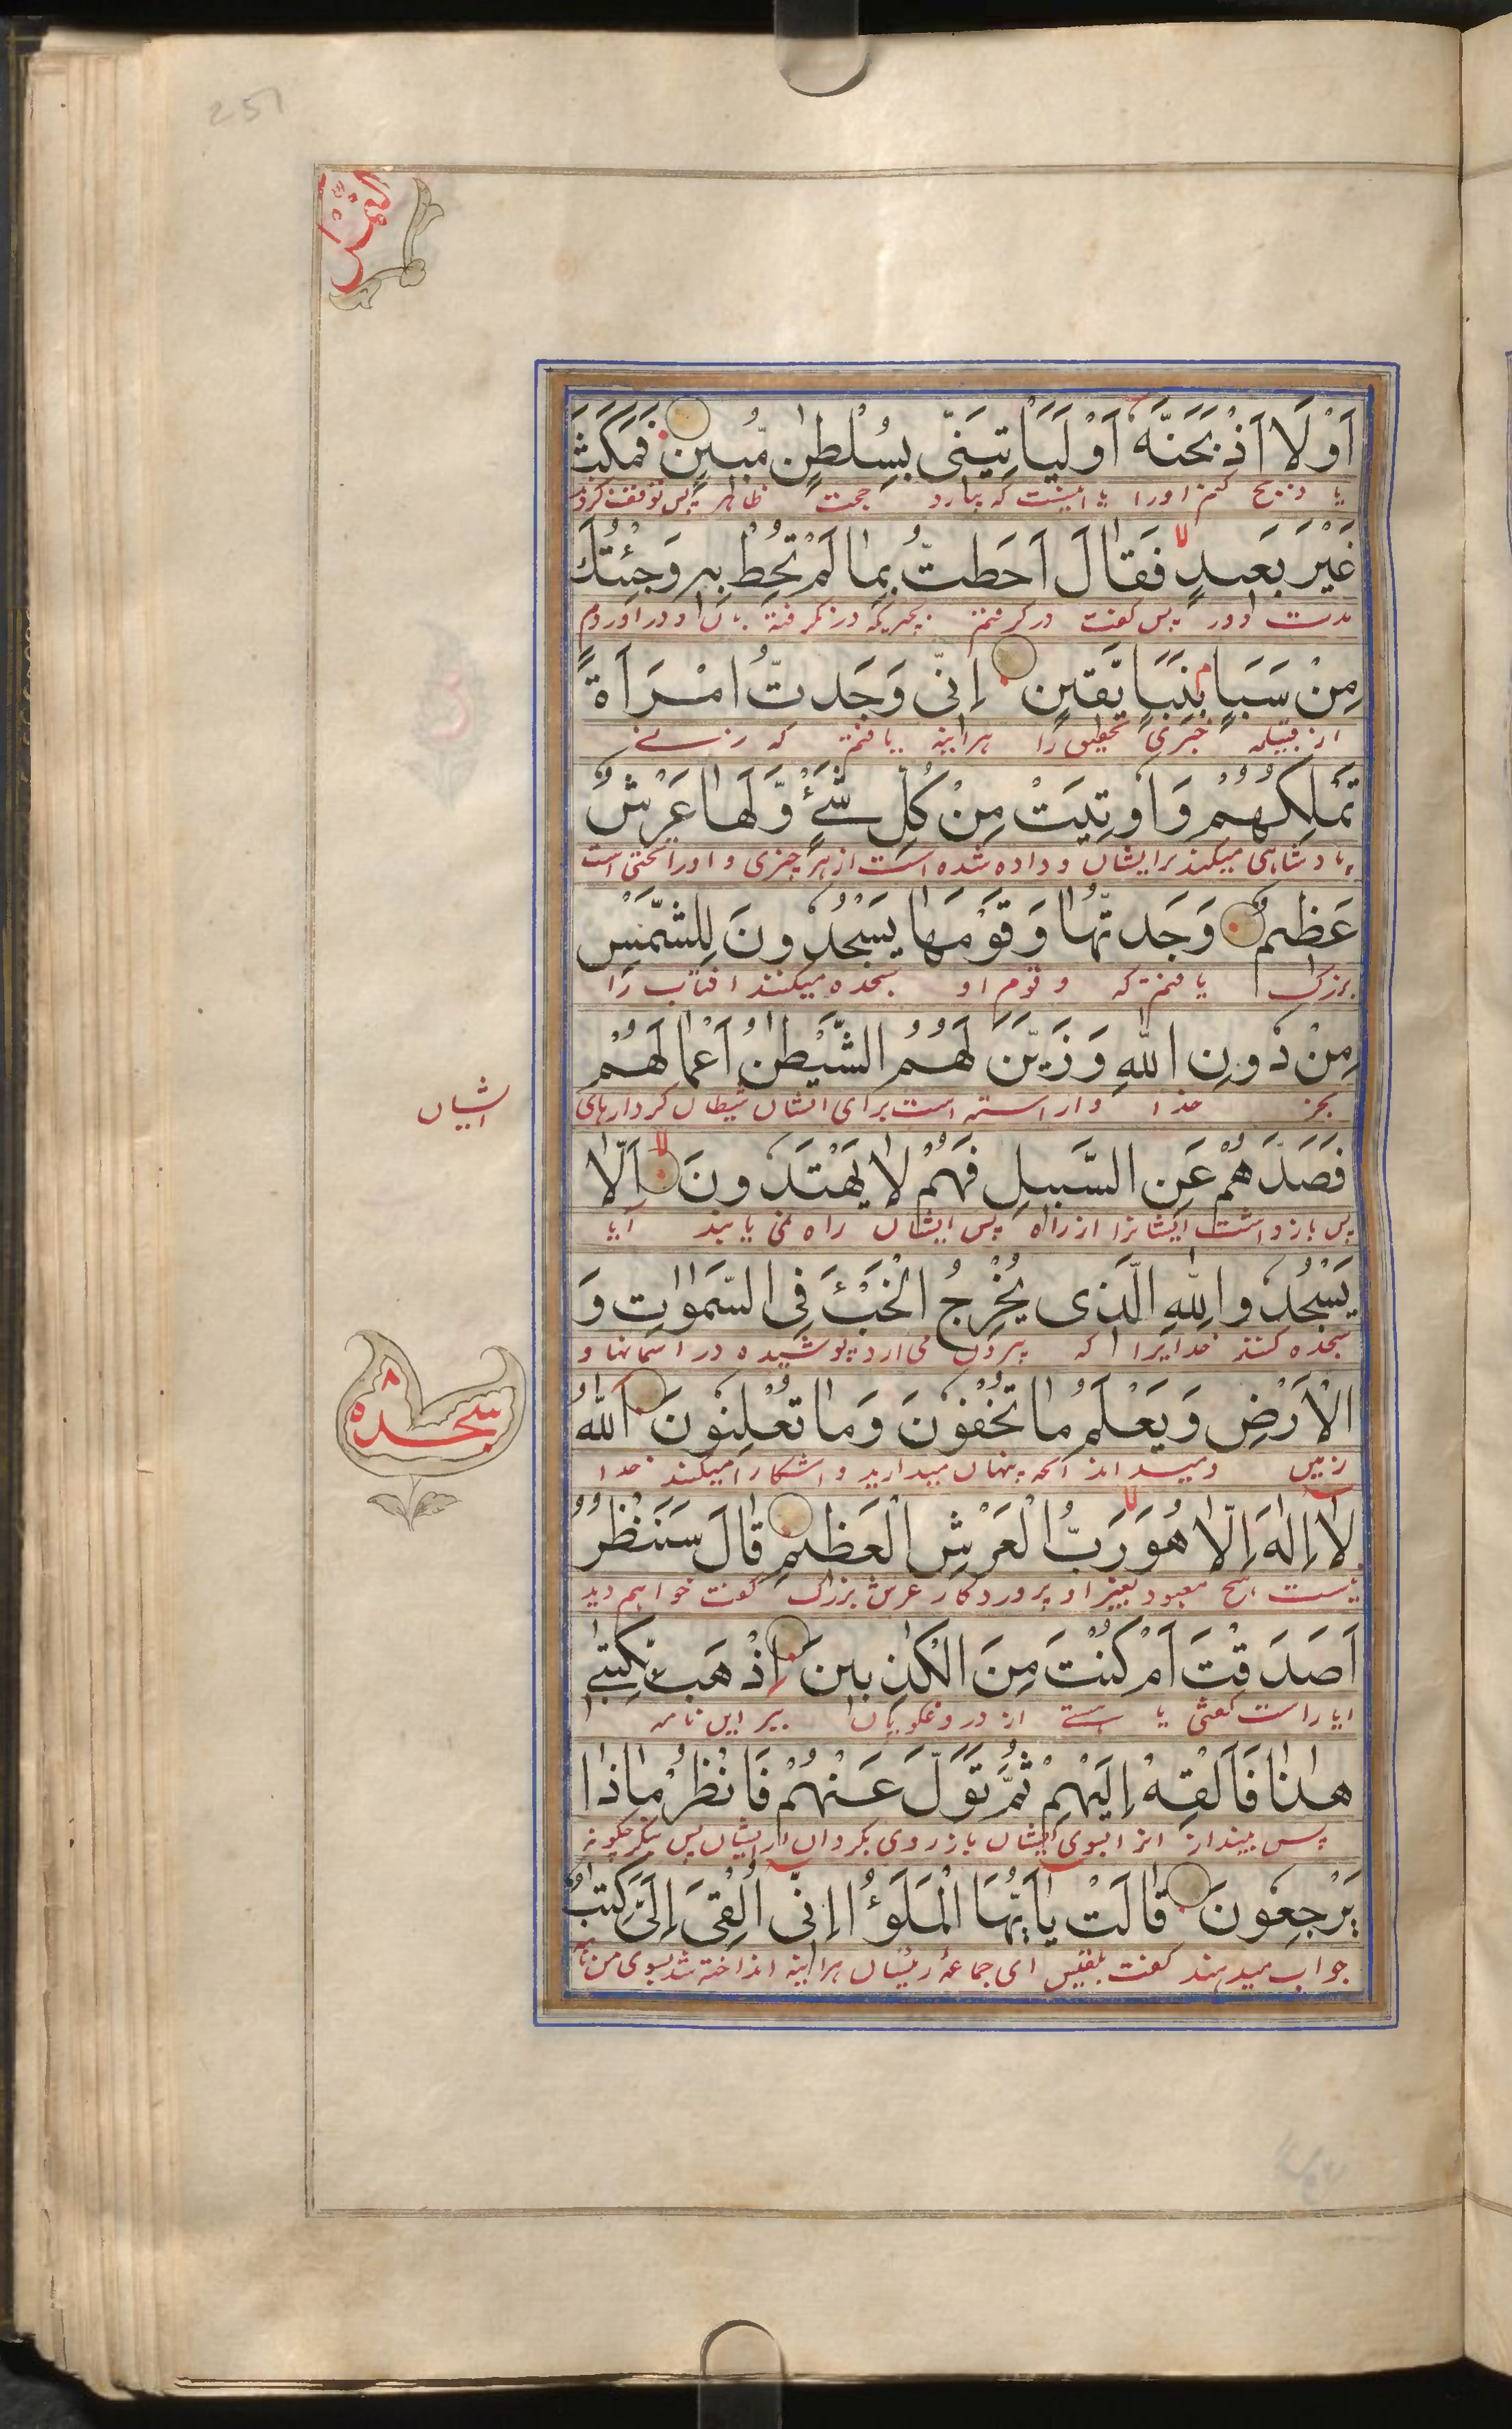 251
النمل
اَوْ لَا۟اَذْبَحَنَّهٗ اَوْ لَيَاْتِيَنّٖى بِسُلْطٰنٍ مُّبٖينٍ فَمَكَثَ
يا ذبح كنم اورا يا اينست كه بيارد حجت ظاهر پس توقف كرد
غَيْرَ بَعٖيدٍ فَقَالَ اَحَطتُّ بِمَا لَمْ تُحِطْ بِهٖ وَجِئْتُكَ
مدت دور پس گفت در گرفتم بچيزيكه در نگرفته بان و در اوردم
مِنْ سَبَاٍ بِنَبَاٍ يَّقٖينٍ اِنّٖى وَجَدتُّ امْرَاَةً
از قبيله خبرى تحقيق را هراينه يافتم كه زنے
تَمْلِكُهُمْ وَاُوتِيَتْ مِنْ كُلِّ شَےْءٍ وَّلَهَا عَرْشٌ
پادشاهى ميكند برايشان و داده شده است از هر چيزى و اورا تختى است
عَظٖيمٌ وَجَدتُّهَا وَقَوْمَهَا يَسْجُدُونَ لِلشَّمْسِ
بزرگ يافتم كه و قوم او سجده ميكنند افتاب را
مِنْ دُونِ اللّٰهِ وَزَيَّنَ لَهُمُ الشَّيْطٰنُ اَعْمَالَهُمْ
بجز خدا و اراسته است براى ايشان شيطان كردارهاى
ايشان
فَصَدَّهُمْ عَنِ السَّبٖيلِ فَهُمْ لَا يَهْتَدُونَ اَلَّا
پس باز داشت ايشانرا از راه پس ايشان راه نمى يابند آيا
يَسْجُدُوا لِلّٰهِ الَّذٖى يُخْرِجُ الْخَبْءَ فِى السَّمٰوَاتِ وَ
سجده كنند خدايرا كه بيرون مى ارد پوشيده در اسمانها و
الْاَرْضِ وَيَعْلَمُ مَا تُخْفُونَ وَمَا تُعْلِنُونَ اَللّٰهُ
زمين و ميداند آنچه پنهان ميداريد و اشكارا ميكنند خدا
سجده ۸
لَا اِلٰهَ اِلَّا هُوَ رَبُّ الْعَرْشِ الْعَظٖيمِ قَالَ سَنَنْظُرُ
نيست هيچ معبود بغير او پروردگار عرش بزرگ گفت خواهيم ديد
اَصَدَقْتَ اَمْ كُنْتَ مِنَ الْكٰذِبٖينَ اِذْهَبْ بِكِتٰبٖے
ايا راست گفتى يا هستے از دروغگويان ببر اين نامه
هٰذَا فَاَلْقِهْ اِلَيْهِمْ ثُمَّ تَوَلَّ عَنْهُمْ فَانْظُرْ مَاذَا
پس بينداز انرا بسوى ايشان باز روى بگردان از ايشان پس بنگر چگونه
يَرْجِعُونَ قَالَتْ يَا اَيُّهَا الْمَلَؤُا اِنّٖى اُلْقِىَ اِلَىَّ كِتٰبٌ
جواب ميدهند گفت بلقيس اى جماعۀ رئيسان هراينه انداخته شد بسوى من نامه